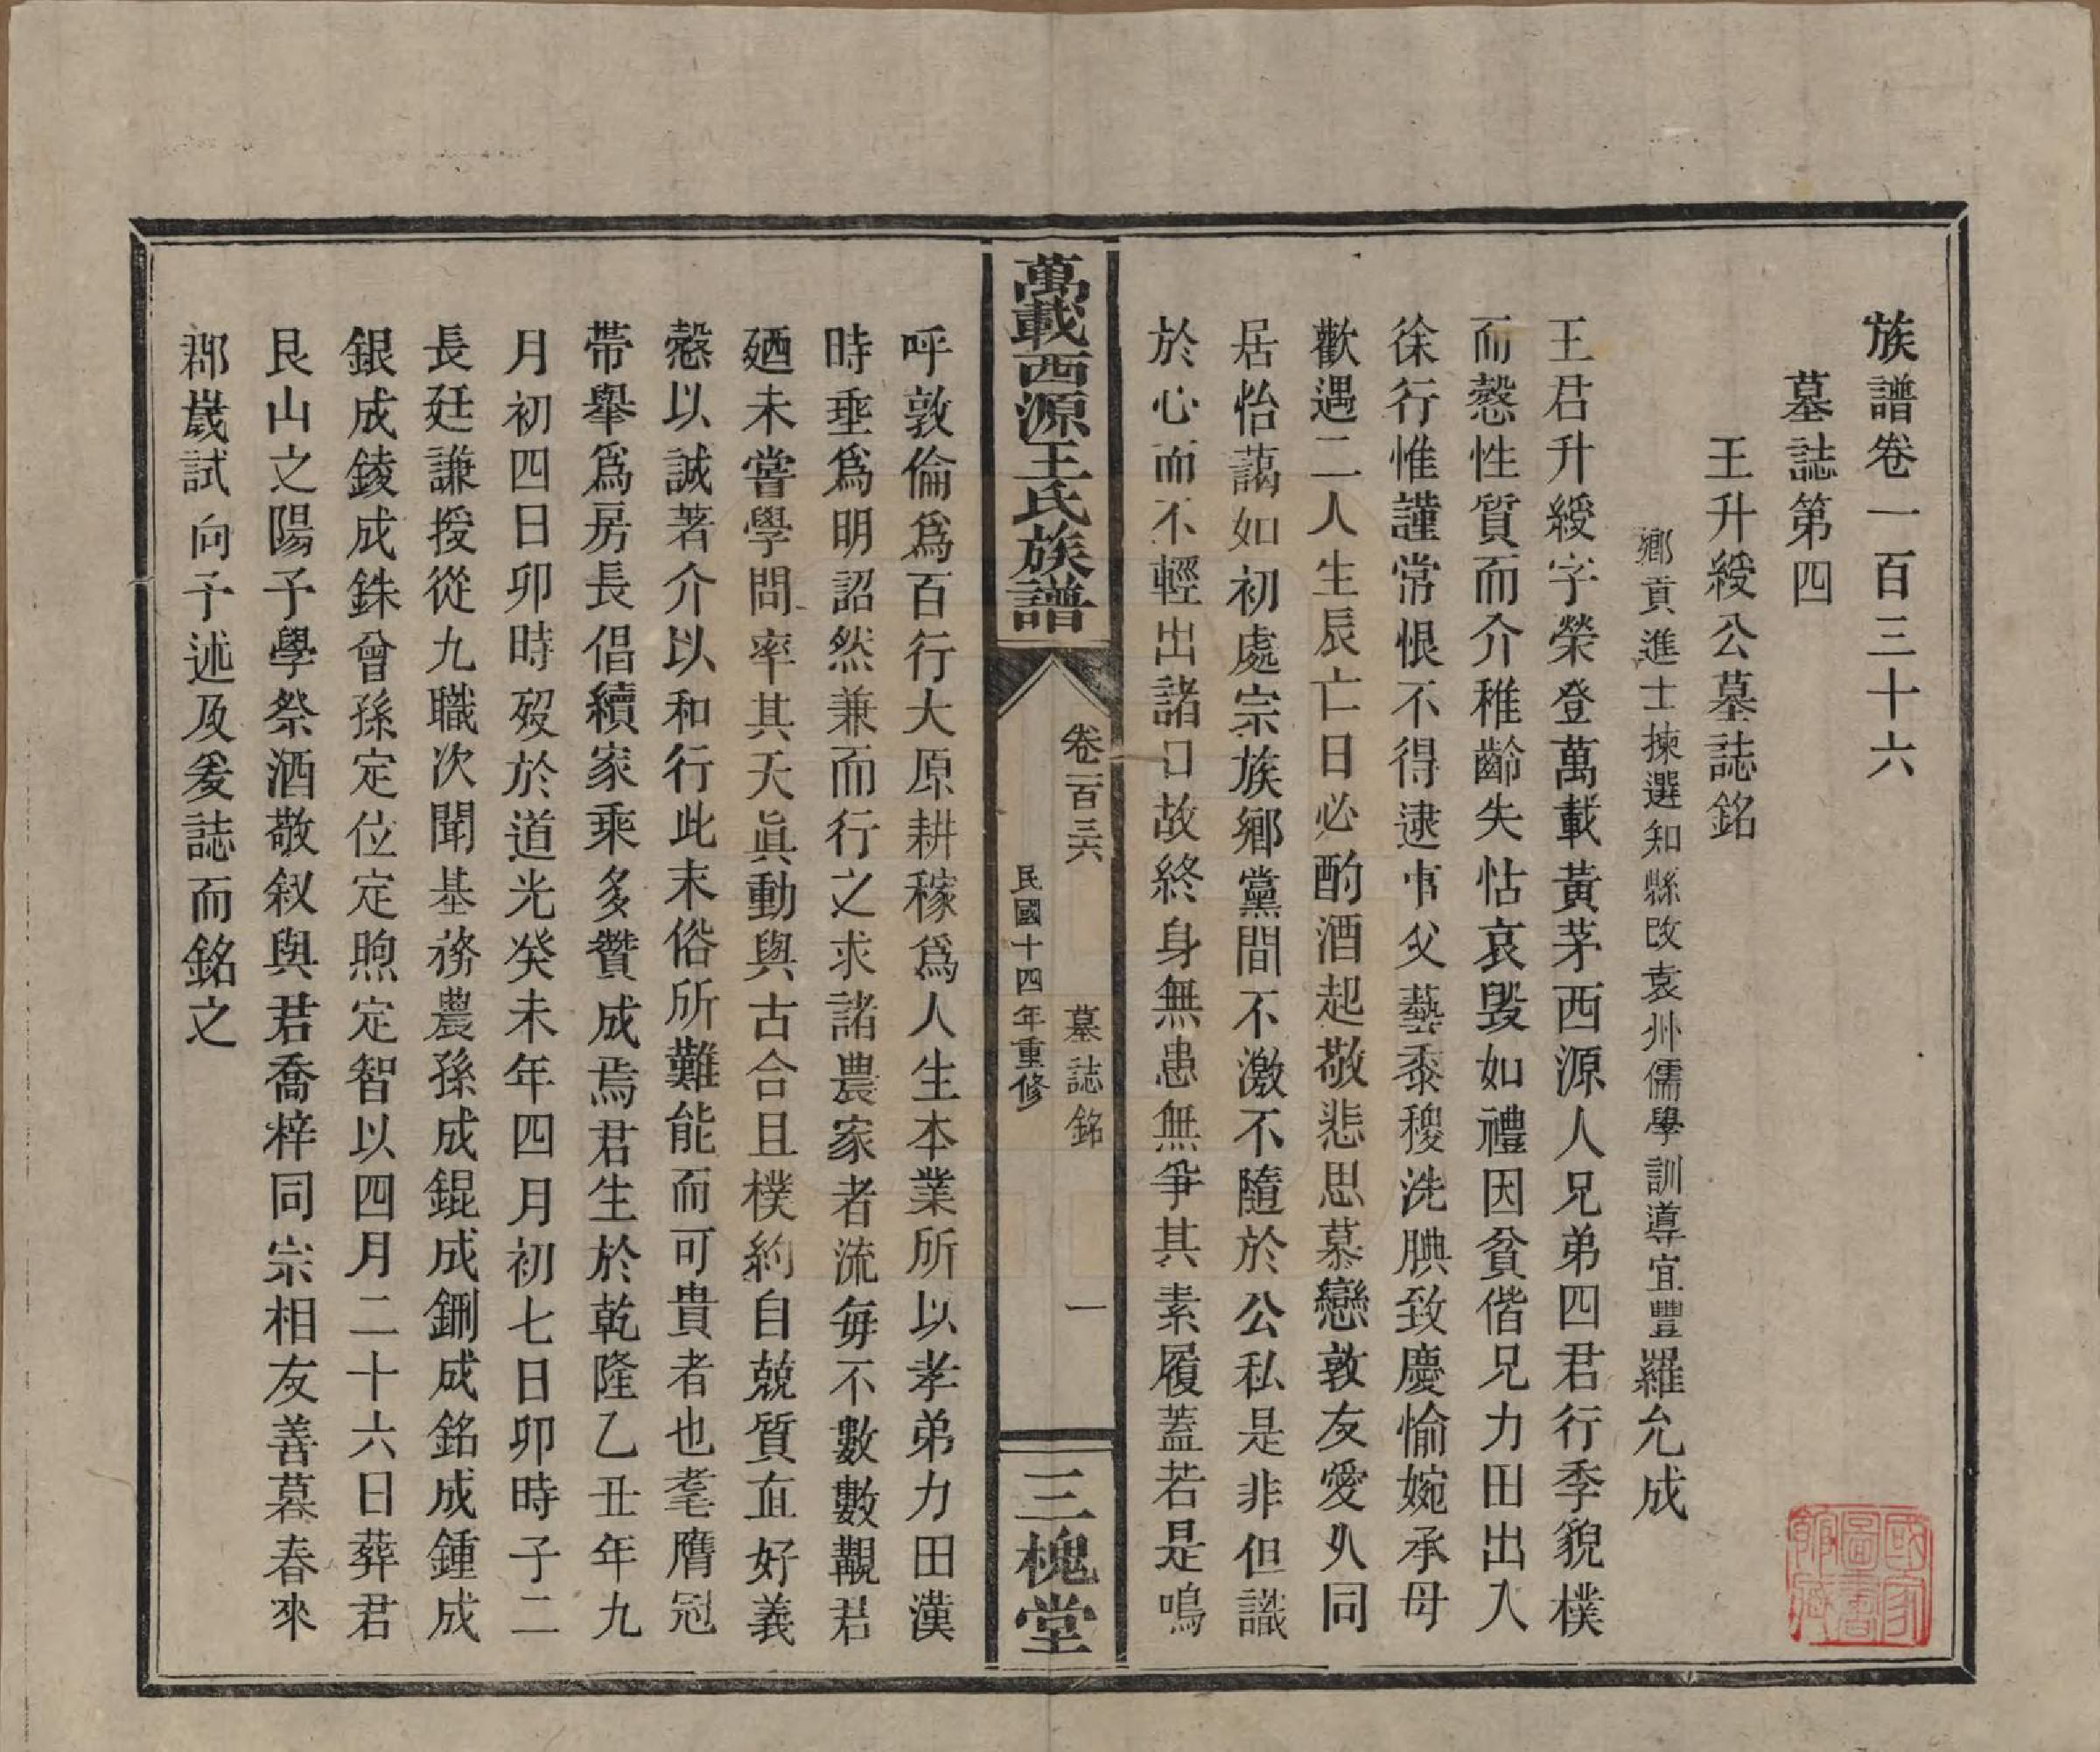 族譜卷一百三十六
墓誌第四
王升綬公墓誌銘
鄉貢進士揀選知縣改袁州儒學訓導宜豐羅允成
王君升綬字榮登萬載黃茅西源人兄弟四君行季貌樸
而慤性質而介稚齡失怙哀毀如禮因貧偕兄力田出入
徐行惟謹常恨不得逮事父藝黍稷洗腆致慶愉婉承母
歡遇二人生辰亡日必酌酒起敬悲思慕戀敦友愛久同
居怡藹如初處宗族鄉黨間不激不隨於公私是非但識
於心而不輕出諸口故終身無患無爭其素履蓋若是嗚
萬載西源王氏族譜
卷一百三六
墓誌銘
一
民國十四年重修
三槐堂
呼敦倫為百行大原耕稼為人生本業所以孝弟力田漢
時垂為明詔然兼而行之求諸農家者流每不數數覯君
廼未嘗學問率其天真動與古合且樸約自兢質直好義
慤以誠著介以和行此末俗所難能而可貴者也耄膺冠
帶舉為房長倡續家乘多贊成焉君生於乾隆乙丑年九
月初四日卯時歿於道光癸未年四月初七日卯時子二
長廷謙授從九職次聞基務農孫成錕成鉶成銘成鍾成
銀成錂成銖曾孫定位定煦定智以四月二十六日葬君
艮山之陽予學祭酒敬叙與君喬梓同宗相友善暮春來
郡歲試向予述及爰誌而銘之
國家圖書館藏